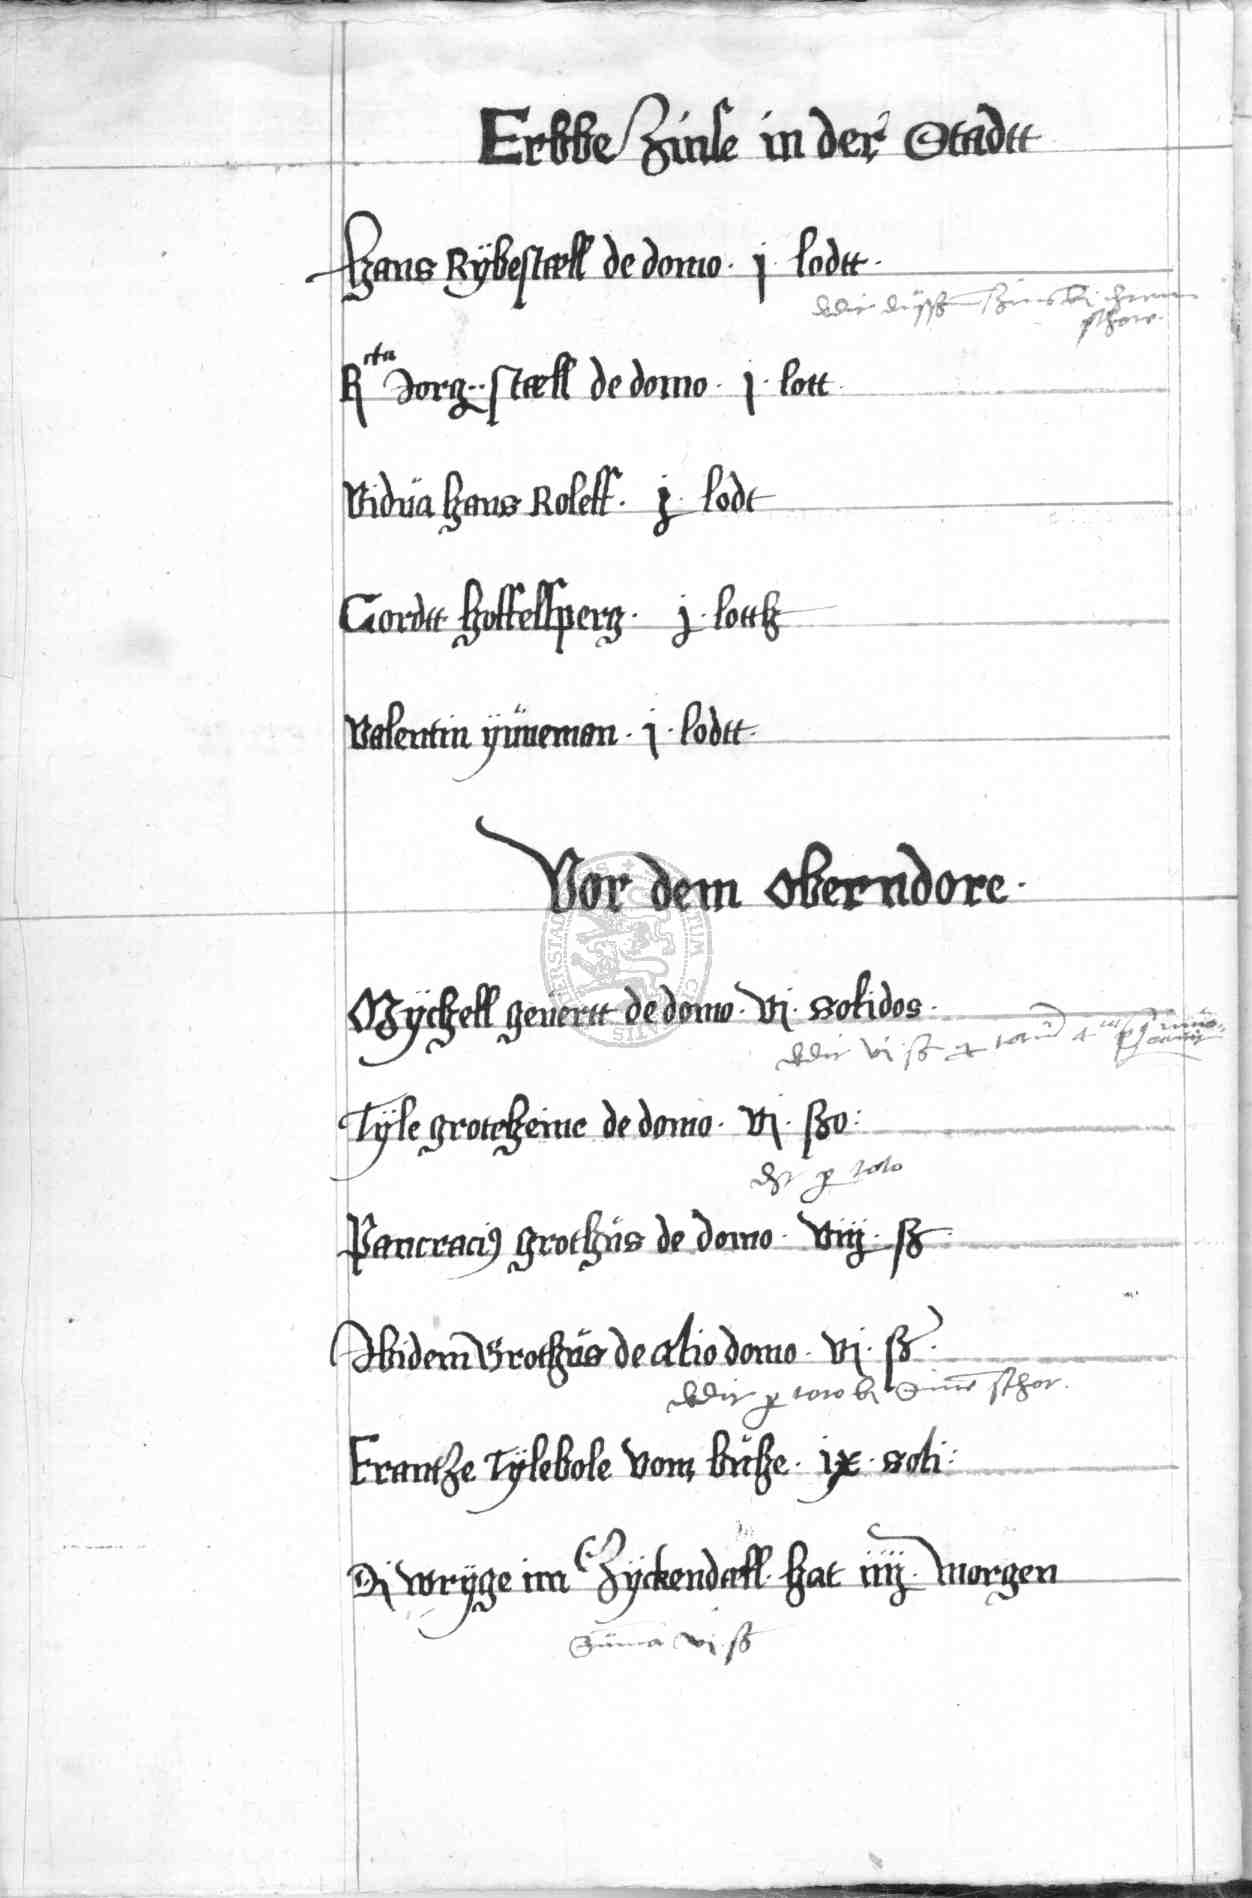 Erbbe Zinse in der Stadtt
Hans Rÿbestæll de domo · j · lodtt ·
dedit
Jorg stæll de domo · j · lott
Vidua Hans Roleff · j · lodt
Cordtt Hoffelsperg · j · lotth
Valentin ÿüneman · j · lodtt ·
Vor dem oberndore ·
Mÿchell gevertt de domo · vj · solidos ·
dedit vj ß
Tÿle groteheine de domo · vj · ßo :
dt p toto
Pancraciꝰ grothus de domo · viij · ß
Ibidem Grothus de alio domo · vj · ß ·
dedit p toto
Frantze Tÿlebole vom huße · ix · soli :
Di wrÿge im Zÿckendall hat iiij · morgen
Suma vj · ß